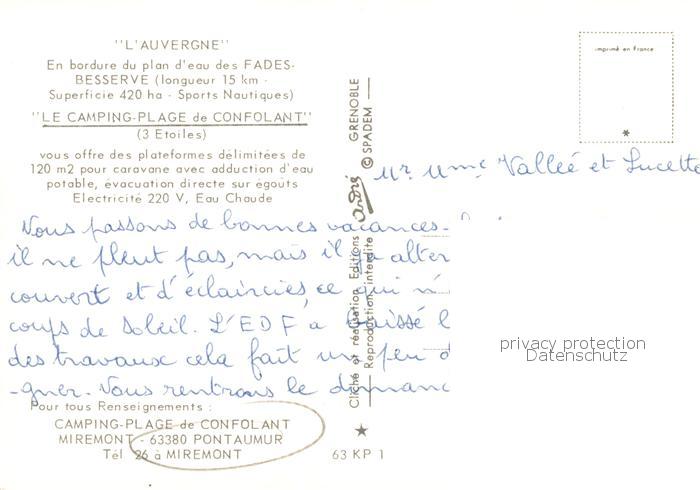 "L'AUVERGNE"
En bordure du plan d'eau des FADES-
BESSERVE (longueur 15 km -
Superficie 420 ha - Sports Nautiques)
"LE CAMPING-PLAGE de CONFOLANT"
(3 Etoiles)
vous offre des plateformes délimitées de
120 m2 pour caravane avec adduction d'eau
potable, évacuation directe sur égoûts
Electricité 220 V, Eau Chaude
Nous passons de bonnes vacances-
il ne pleut pas, mais il y a alter
couvert et d'éclaircies, ce qui n'
coups de soleil. L'EDF a baissé l
des travaux cela fait un peu d
-gner. Nous rentrons le dimanc
Pour tous Renseignements :
CAMPING-PLAGE de CONFOLANT
MIREMONT - 63380 PONTAUMUR
Tél 26 à MIREMONT
63 KP 1
Cliché et réalisation Editions André GRENOBLE
Reproduction interdite © SPADEM
imprimé en France
Mr. Mme Vallée et Lucette
privacy protection
Datenschutz